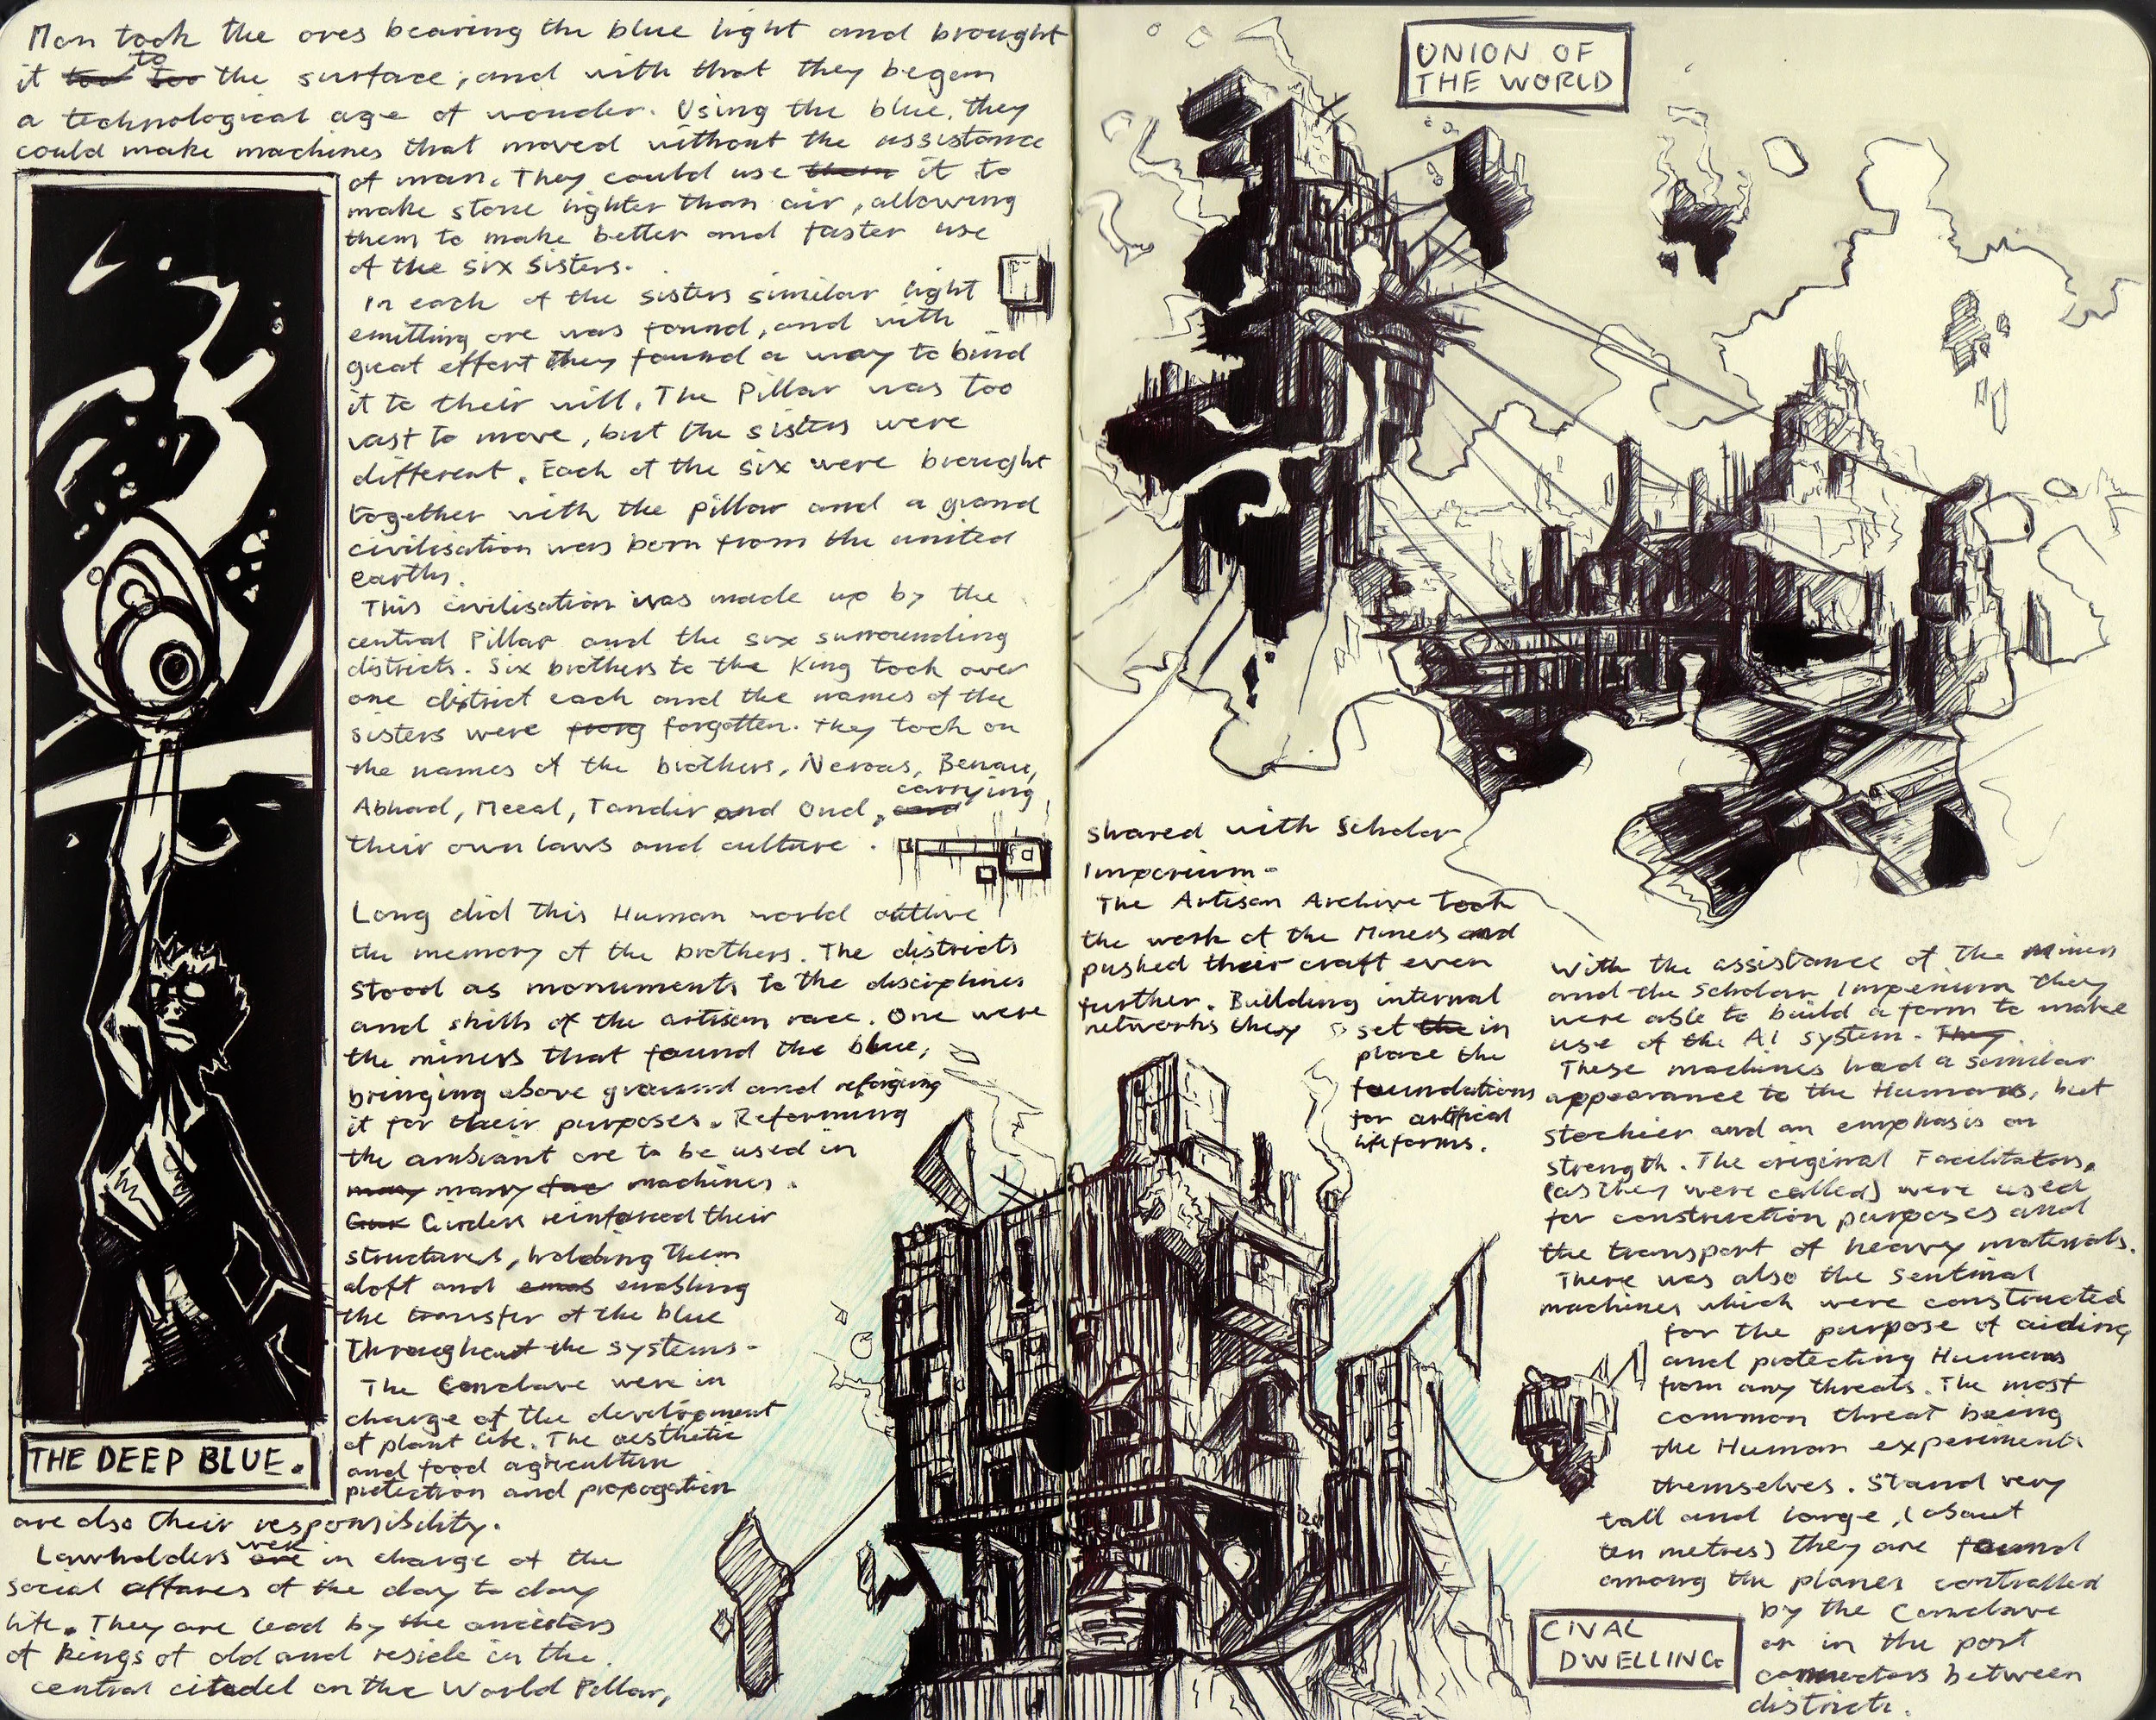 Man took the ores bearing the blue light and brought
it to the surface, and with that they began
a technological age of wonder. Using the blue, they
could make machines that moved without the assistance
of man. They could use it to
make stone lighter than air, allowing
them to make better and faster use
of the six sisters.
In each of the sisters similar light
emitting ore was found, and with
great effort they found a way to bind
it to their will. The Pillar was too
vast to move, but the sisters were
different. Each of the six were brought
together with the pillar and a grand
civilisation was born from the united
earths.
This civilisation was made up by the
central Pillar and the six surrounding
districts. Six brothers to the King took over
one district each and the names of the
sisters were forgotten. They took on
the names of the brothers, Nerous, Benau,
Abhad, Meeal, Tandir and Oud, carrying
their own laws and culture.
Long did this Human world outlive
the memory of the brothers. The districts
stood as monuments to the disciplines
and skills of the artisan race. One were
the miners that found the blue,
bringing above ground and reforging
it for their purposes. Reforming
the ambiant ore to be used in
many machines.
Girders reinforced their
structures, holding them
aloft and enabling
the transfer of the blue
throughout the systems.
The Conclave were in
charge of the development
of plant life. The aesthetic
and food agriculture
protection and propogation
are also their responsibility.
Lawholders were in charge of the
social affares of the day to day
life. They are lead by the ancestors
of kings of old and reside in the
central citadel on the World Pillar,
THE DEEP BLUE.
UNION OF
THE WORLD
shared with Scholar
Imperium.
The Artisan Archive took
the work of the Miners and
pushed their craft even
further. Building internal
networks they set in
place the
foundations
for artifical
lifeforms.
With the assistance of the Miners
and the Scholar Imperium they
were able to build a form to make
use of the AI system.
These machines had a similar
appearance to the Humans, but
stockier and an emphasis on
strength. The original Facilitators,
(as they were called) were used
for construction purposes and
the transport of heavy materials.
There was also the Sentinal
machines which were constructed
for the purpose of aiding
and protecting Humans
from any threats. The most
common threat being
the Human experiments
themselves. Stand very
tall and large, (about
ten metres) they are found
among the planes controlled
by the Conclave
or in the port
connectors between
districts.
CIVAL
DWELLING